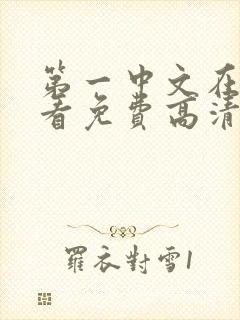 第一中文在
看免费高清
羅衣對雪1